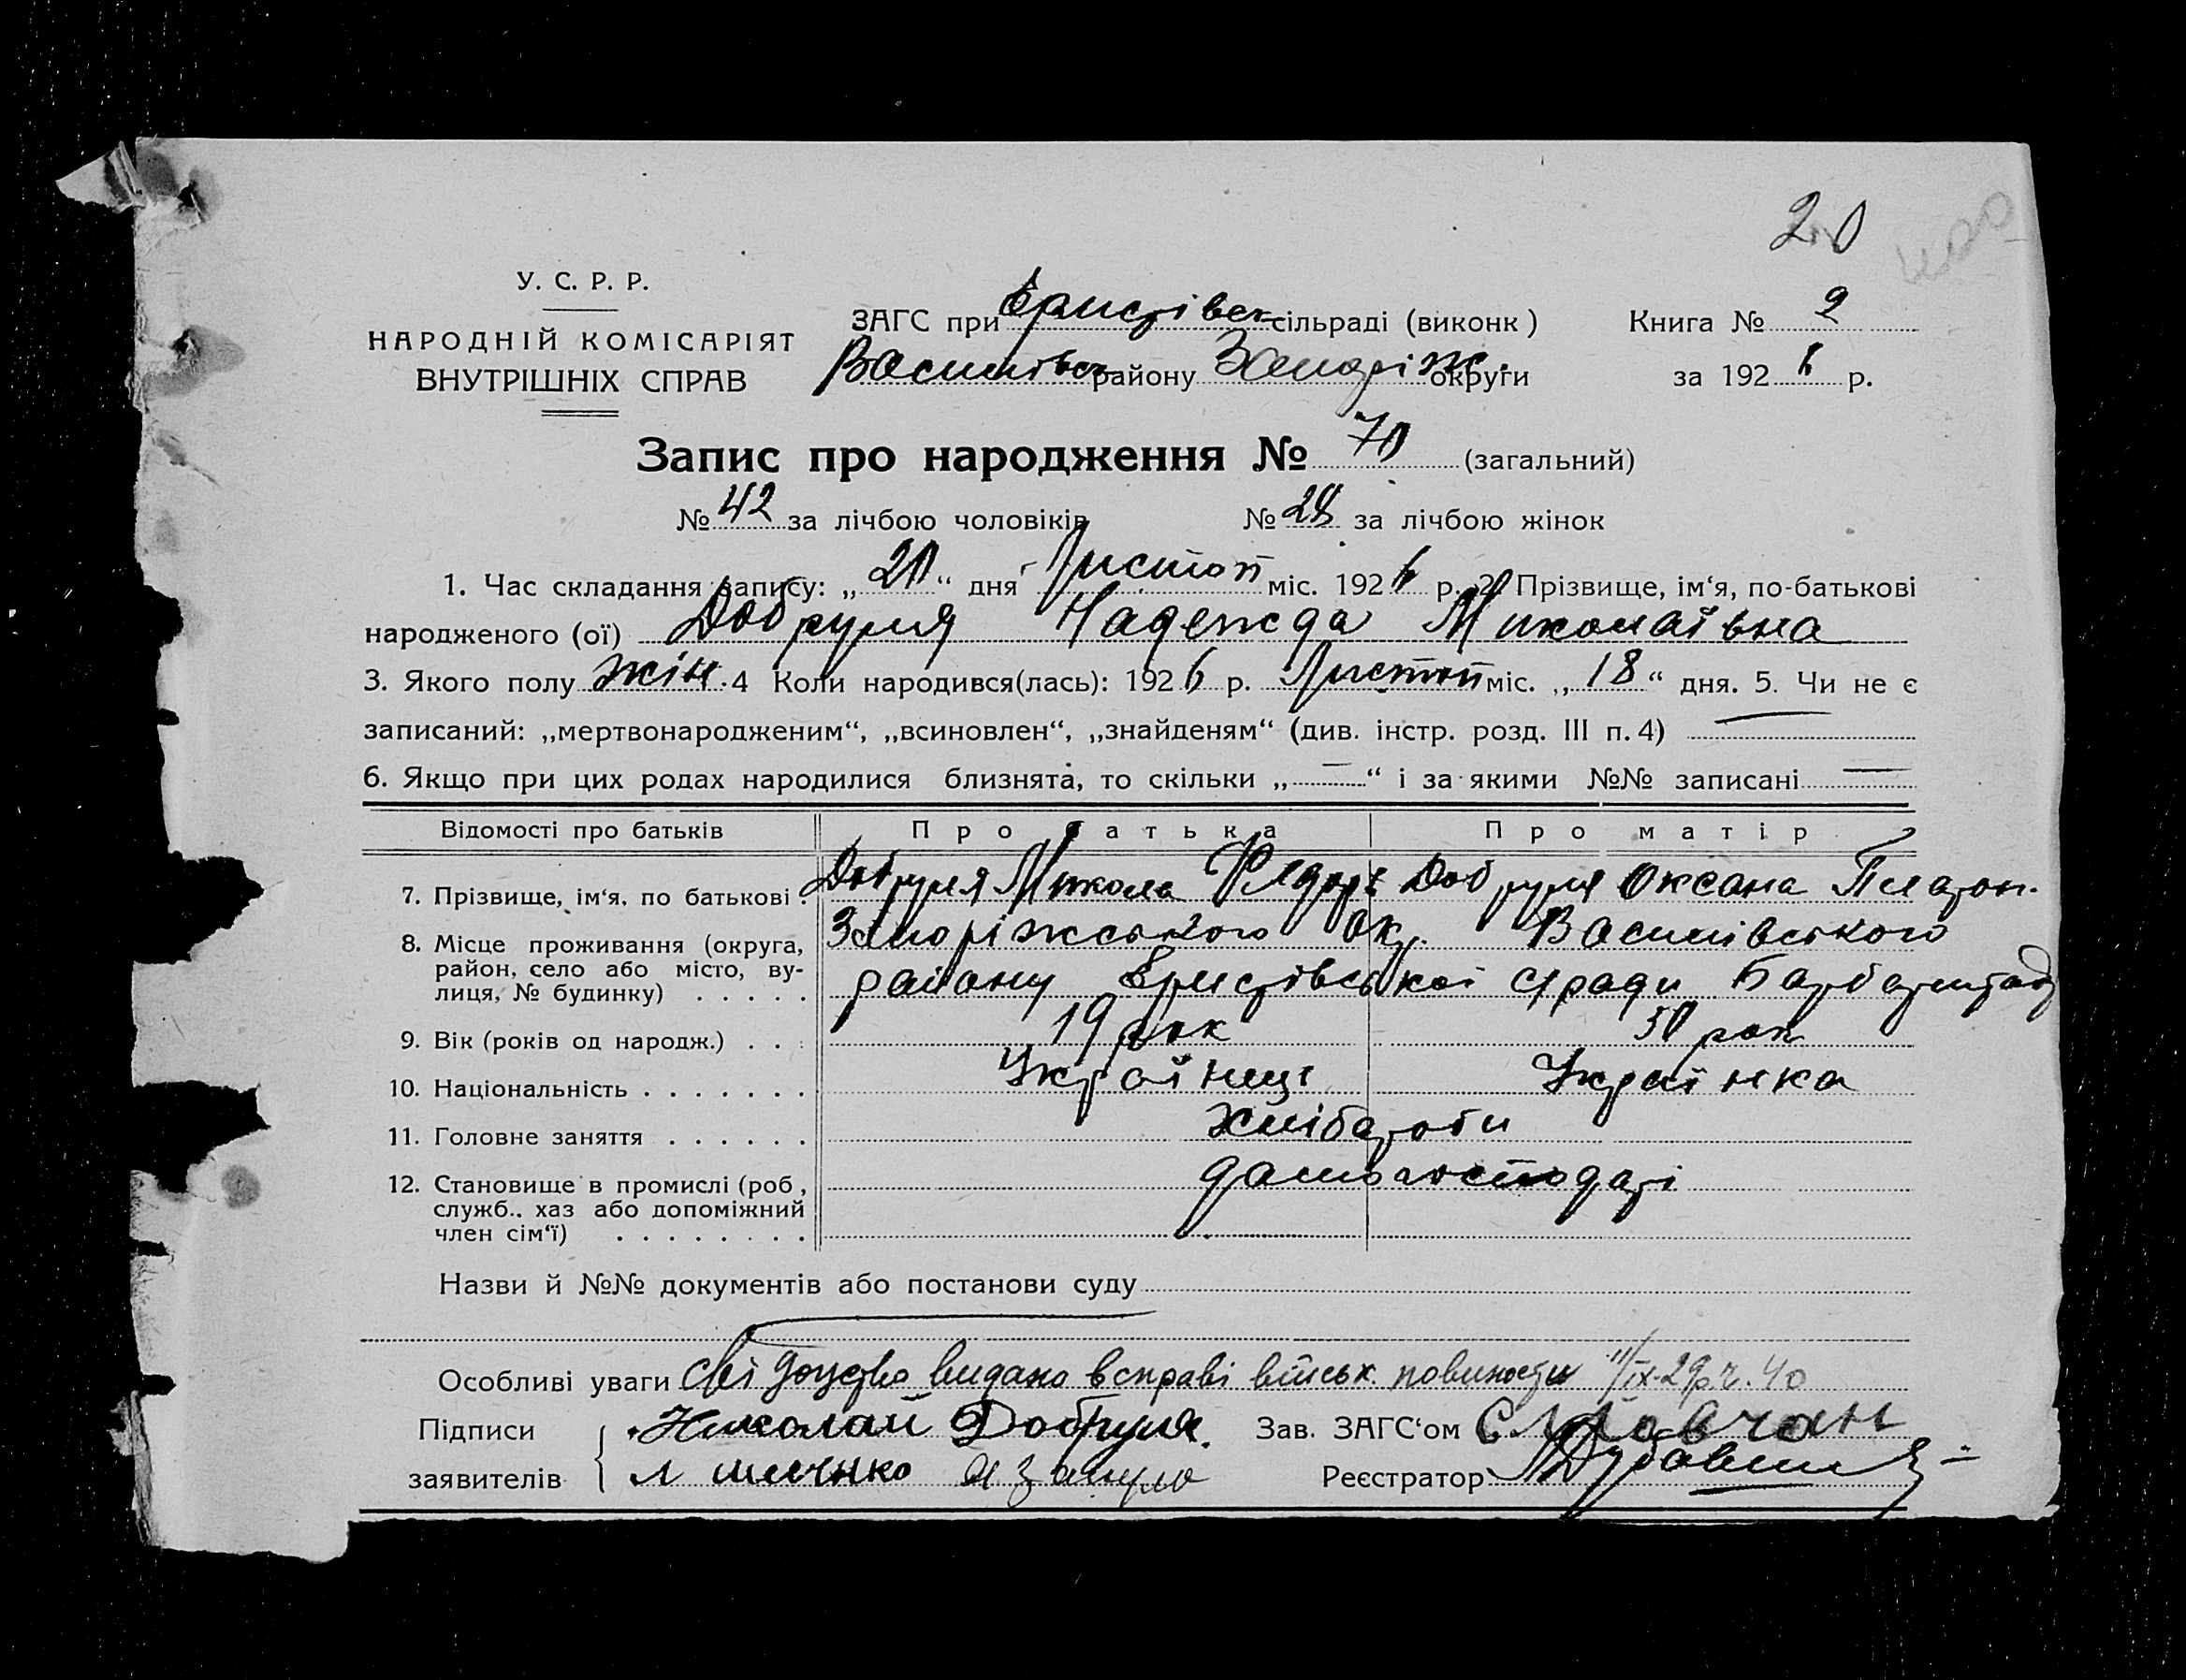 20
У. С. Р. Р.
НАРОДНІЙ КОМІСАРІЯТ
ВНУТРІШНІХ СПРАВ
ЗАГС при Еристівск сільраді (виконк)
Василівск району Запоріж. округи
Книга № 2
за 1926 р.
Запис про народження № 70 (загальний)
№ 42 за лічбою чоловіків № 28 за лічбою жінок
1. Час складання запису: „20“ дня Листоп міс. 1926 р. 2. Прізвище, ім‘я, по-батькові
народженого (ої) Добруля Надежда Миколаївна
3. Якого полу жін. 4 Коли народився(лась): 1926 р. Листоп міс. „18“ дня. 5. Чи не є
записаний: „мертвонародженим“, „всиновлен“, „знайденям“ (див. інстр. розд. III п. 4) —
6. Якщо при цих родах народилися близнята, то скільки „—“ і за якими №№ записані —
Відомості про батьків Про батька Про матір
7. Прізвище, ім‘я, по батькові . Добруля Микола Добруля Оксана Платон.
8. Місце проживання (округа, район, село або місто, вулиця, № будинку) . . . . . Запоріжського Окр. Василівського
району Еристівської сради
9. Вік (років од народж.) . . : 19 рок рок
10. Національність . . . . . . . Українець Українка
11. Головне заняття . . . . . . Хлібороби
12. Становище в промислі (роб, служб., хаз або допоміжний член сім‘ї) . . . . . . . . .
Назви й №№ документів або постанови суду
Особливі уваги Свідоцтво видано в справі військ. повиности
Підписи заявителів Николай Добруля. Зав. ЗАГС‘ом
Реєстратор